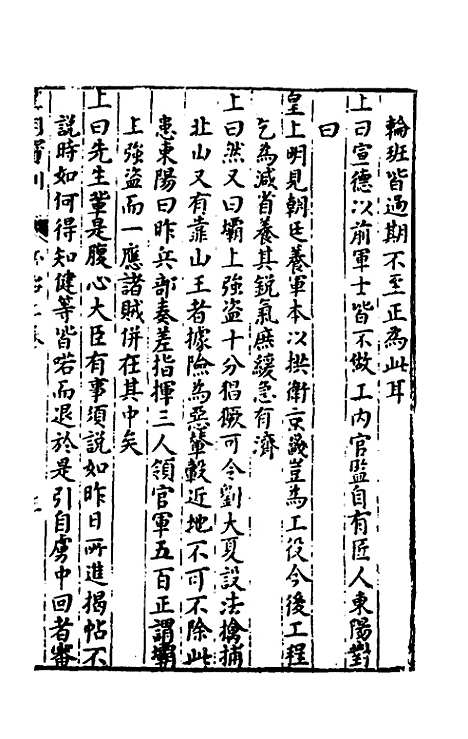 輪班皆過期不至正為此耳
上曰宣德以前軍士皆不做工內官監自有匠人東陽對
曰
皇上明見朝廷養軍本以拱衛京畿豈為工役今後工程
乞為減省養其銳氣庶緩急有濟
上曰然又曰壩上強盜十分猖獗可令劉大夏設法擒捕
北山又有靠山王者據險為惡輦轂近地不可不除此
患東陽曰昨兵部奏差指揮三人領官軍五百正謂壩
上強盜而一應諸賊併在其中矣
上曰先生輩是腹心大臣有事須說如昨日所進揭帖不
說時如何得知健等皆喏而退於是引自虜中回者審